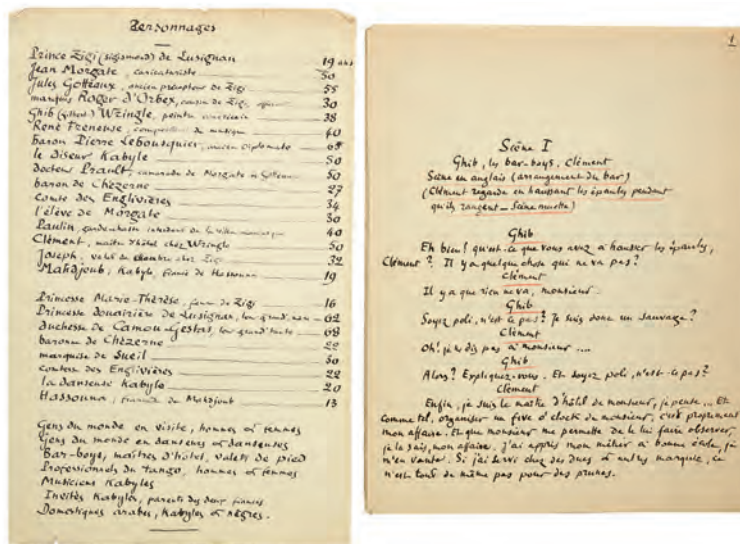 Personnages
Prince Zigi (Sigismond) de Lusignan 19 ans
Jean Morgate, caricaturiste 50
Jules Gotteaux, ancien précepteur de Zigi 55
marquis Roger d'Orbex, cousin de Zigi 30
Ghib Wringle, peintre américain 38
René Freneuse, compositeur de musique 40
baron Pierre Lebousquier, ancien diplomate 65
le Diseur Kabyle 50
docteur Prault, camarade de Morgate et Gotteaux 50
baron de Chézerne 27
comte des Englivières 34
l'élève de Morgate 30
Paulin, garde-chasse intendant de la villa 40
Clément, maître d'hôtel chez Wringle 50
Joseph, valet de chambre chez Zigi 32
Mahdjoub, Kabyle, fiancé de Hassouna 19
Princesse Marie-Thérèse, femme de Zigi 16
Princesse douairière de Lusignan, leur grand'mère 62
duchesse de Camou-Gestas, leur grand'tante 68
baronne de Chézerne 22
marquise de Sueil 50
comtesse des Englivières 22
la danseuse Kabyle 20
Hassouna, fiancée de Mahdjoub 13
Gens du monde en visite, hommes et femmes
Gens du monde en danseurs et danseuses
Bar-boys, maîtres d'hôtel, valets de pied
Professionnels du tango, hommes et femmes
Musiciens Kabyles
Invités Kabyles, parents des deux fiancés
Domestiques arabes, Kabyles et nègres.
1
Scène I
Ghib, les bar-boys, Clément
Scène en anglais (arrangement du bar)
(Clément regarde en haussant les épaules pendant
qu'ils rangent - Scène muette)
Ghib
Eh bien! qu'est-ce que vous avez à hausser les épaules,
Clément? Il y a quelque chose qui ne va pas?
Clément
Il y a que rien ne va, monsieur
Ghib
Soyez poli, n'est ce pas? Je suis donc un sauvage?
Clément
Oh! je ne dis pas à monsieur ....
Ghib
Alors? Expliquez-vous. Et soyez poli, n'est-ce pas?
Clément
Enfin, je suis le maître d'hôtel de monsieur, je pense... Et
comme tel, organiser un five o'clock de monsieur, c'est proprement
mon affaire. Et que monsieur me permette de le lui faire observer,
je la sais, mon affaire. J'ai appris mon métier à bonne école, je
m'en vante. Si j'ai servi chez des ducs et autres marquis, ce
n'est tout de même pas pour des prunes.